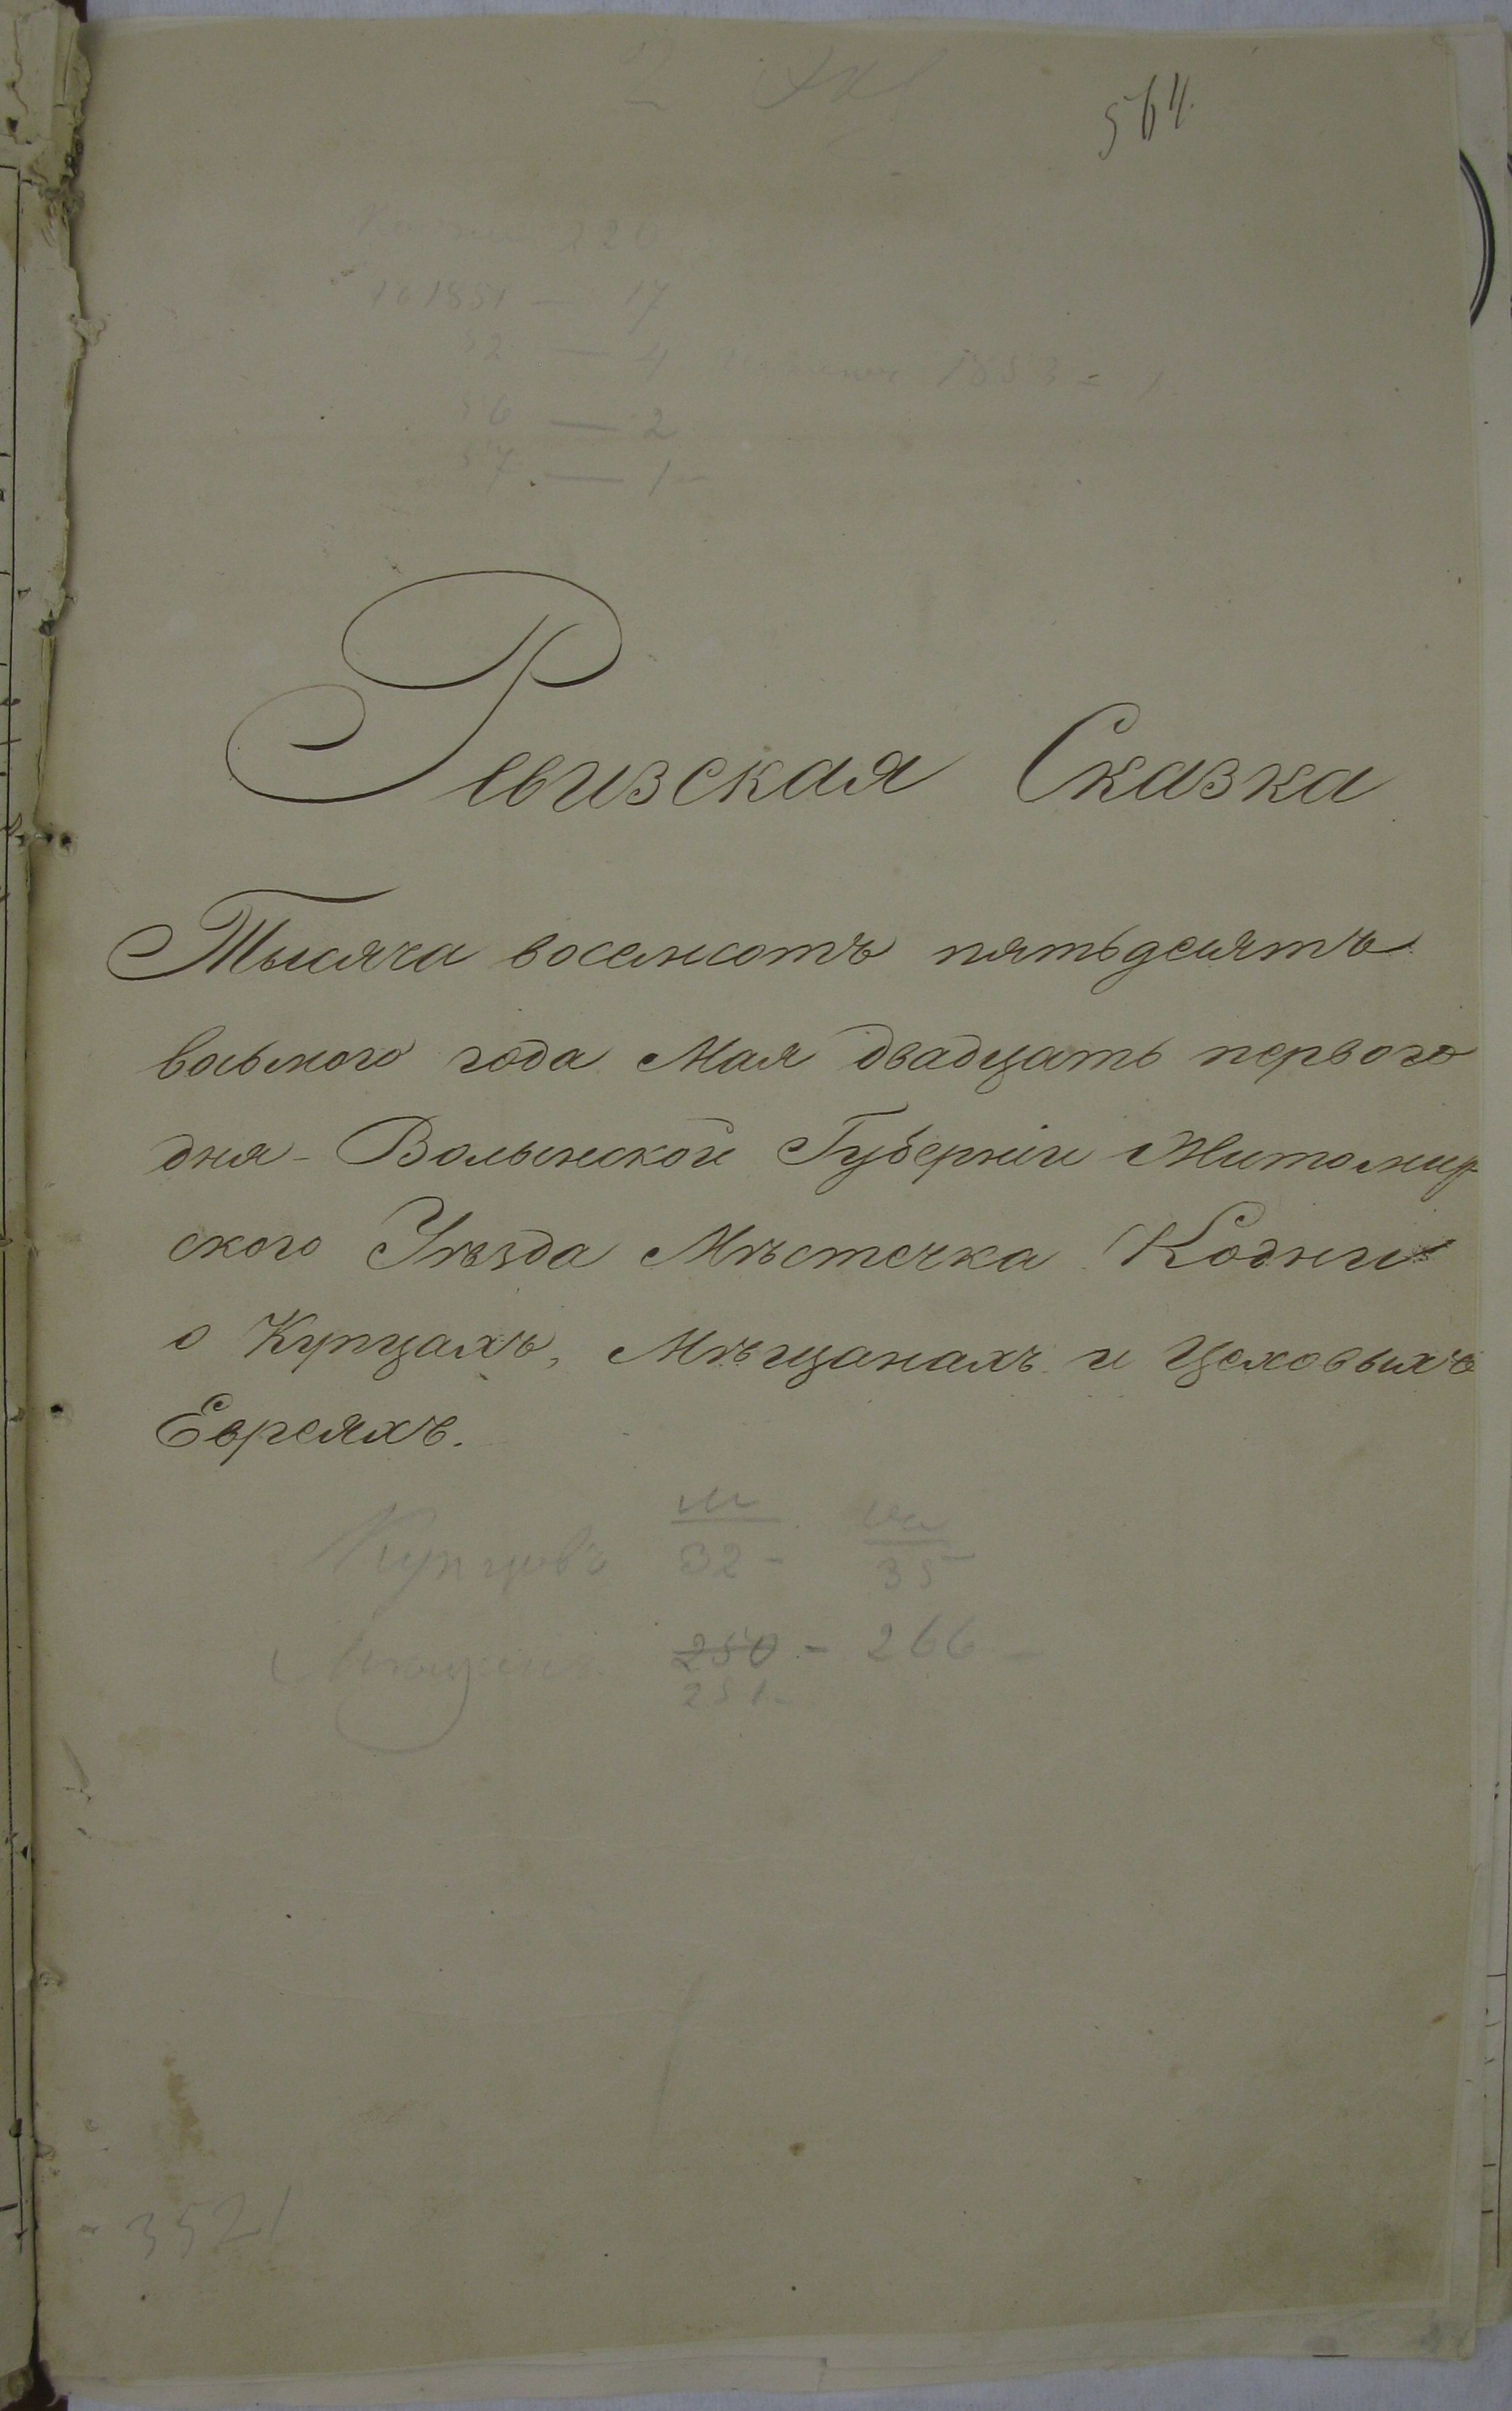 564.
161851 — 17
52 — 4 1853 = 1
56 — 2
57 — 1 -
Ревизская Сказка
Тысяча восемсотъ пятьдесятъ
восьмого года Мая двадцать первого
дня - Волынской Губерніи Житомир
ского Уѣзда Мѣстечка Кодни
о Купцахъ, Мѣщанахъ и Цеховыхъ
Евреяхъ.
Купцовъ 32 - 35
Мѣщанъ 250 - 266 -
251 -
3521